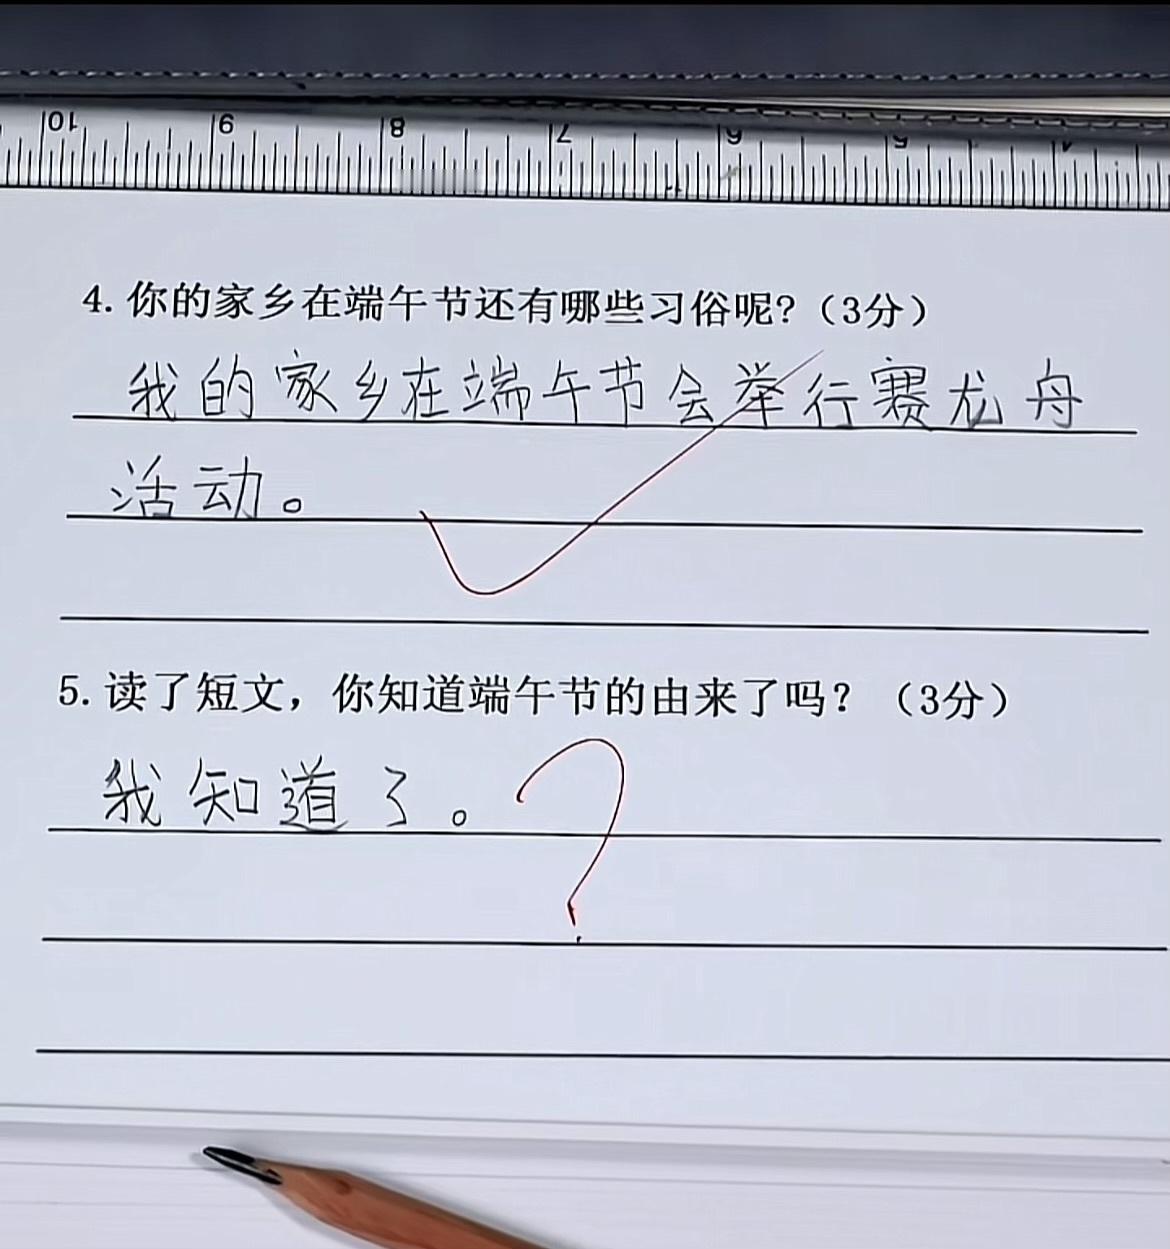 10 9 8 7 6 5
4. 你的家乡在端午节还有哪些习俗呢?（3分）
我的家乡在端午节会举行赛龙舟
活动。
5. 读了短文，你知道端午节的由来了吗？（3分）
我知道了。
?